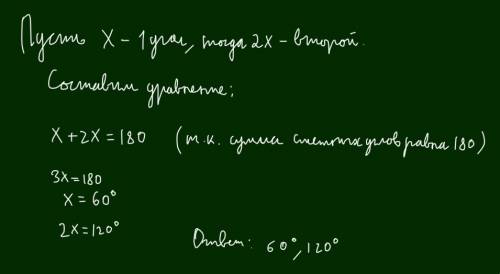 Пусть x – 1 угол, тогда 2x – второй.
Составим уравнение;
x + 2x = 180 (т.к. сумма смежных углов равна 180)
3x = 180
x = 60°
2x = 120°
Ответ: 60°, 120°